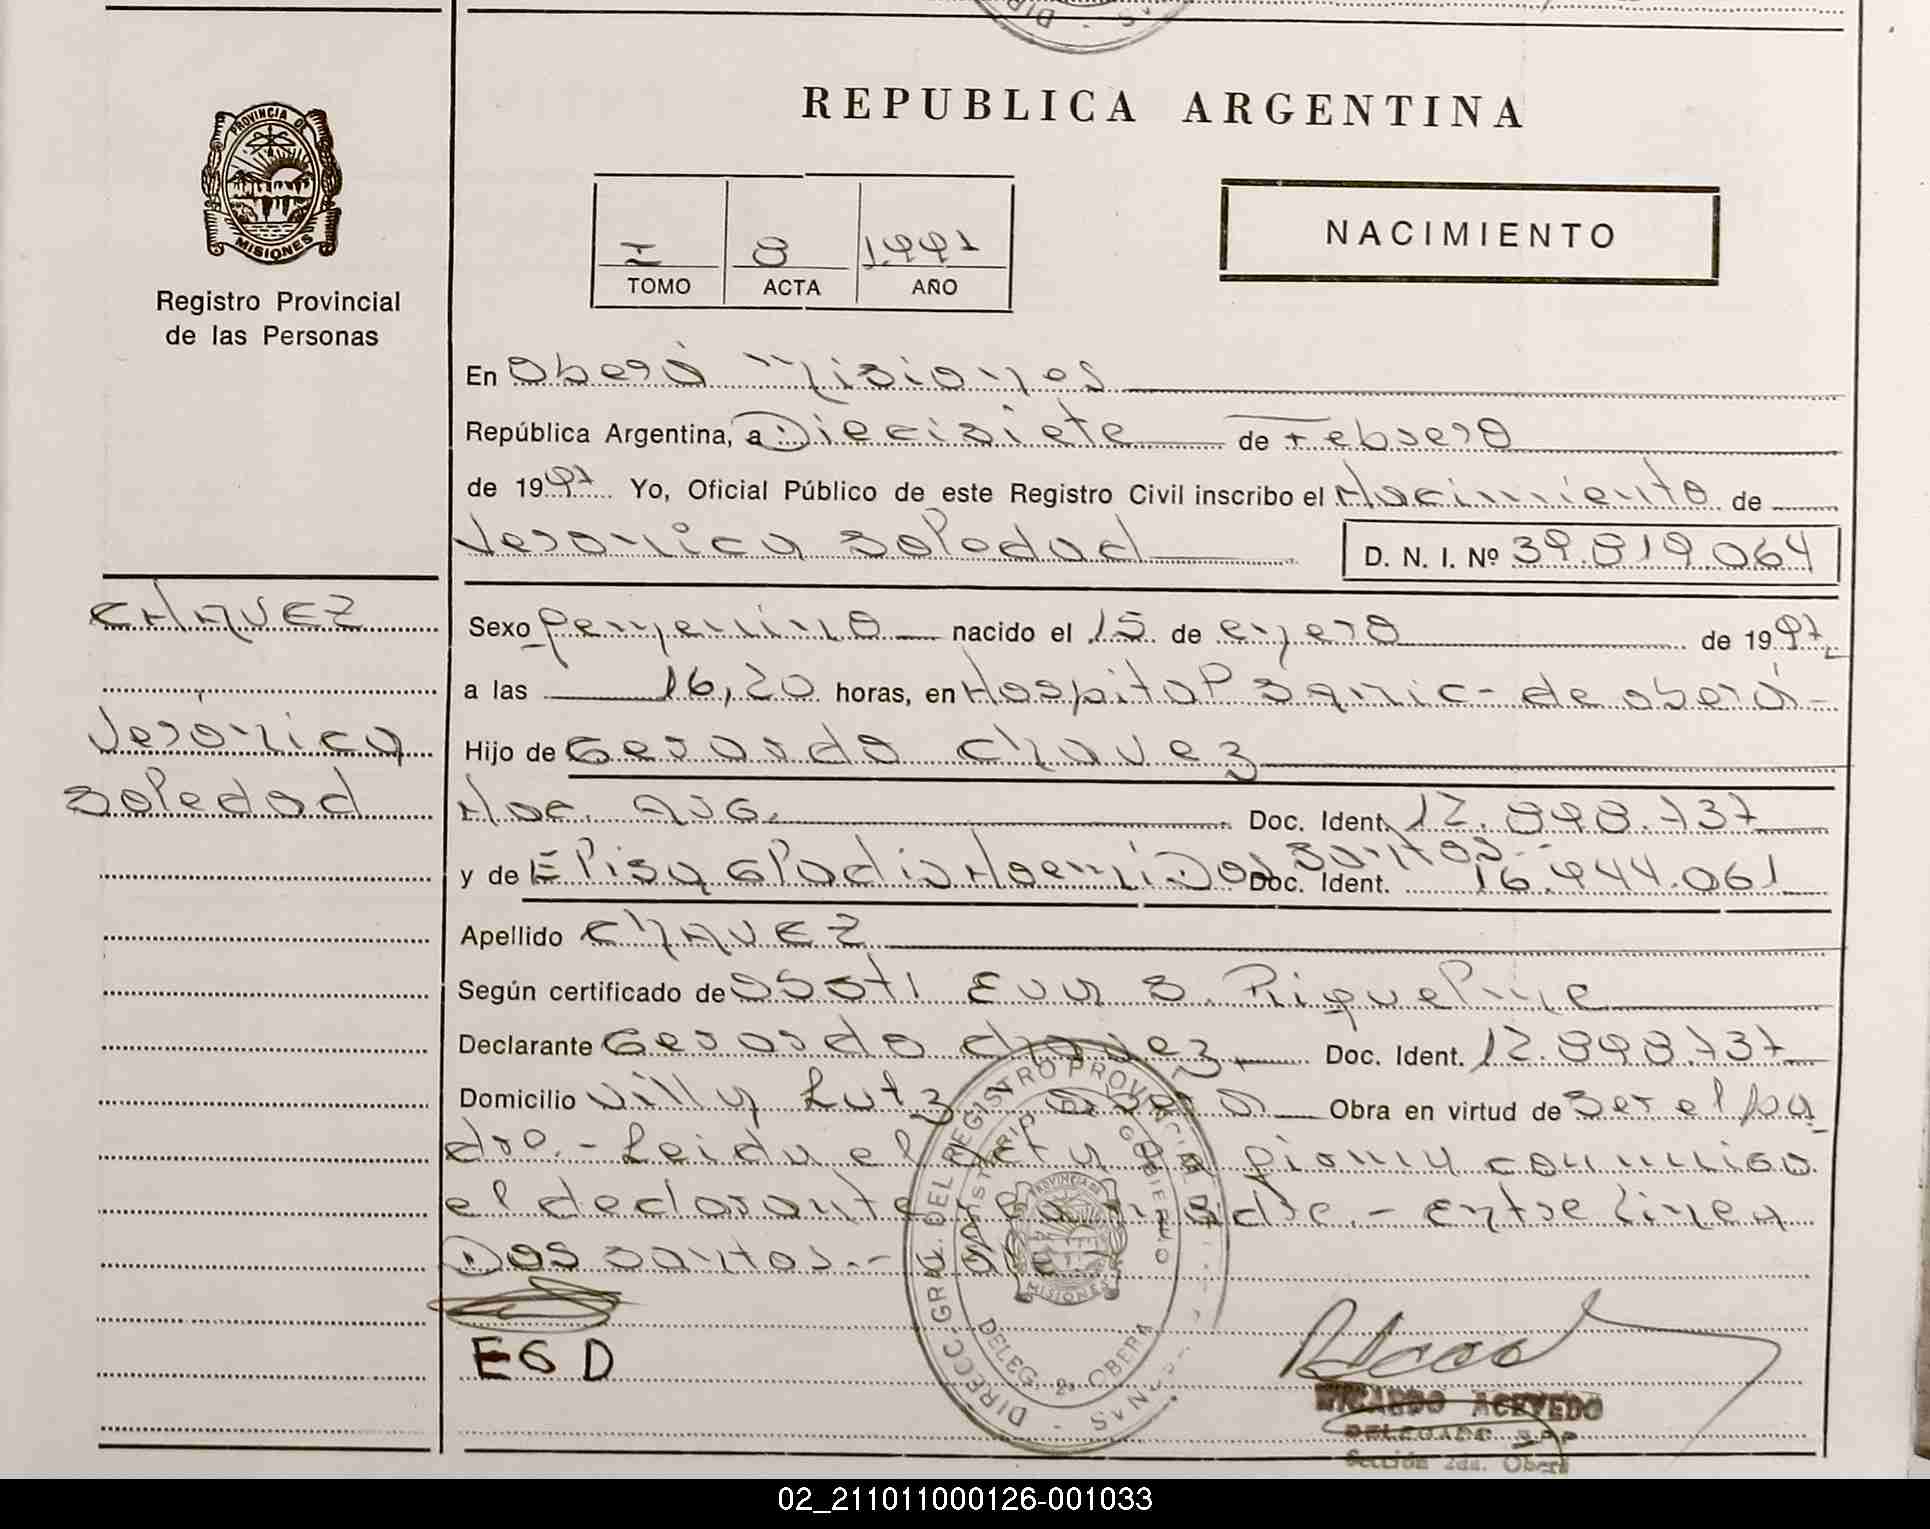 REPUBLICA ARGENTINA
PROVINCIA DE
MISIONES
Registro Provincial
de las Personas
I 8 1.997
TOMO ACTA AÑO
NACIMIENTO
En Oberá Misiones
República Argentina, a Diecisiete de Febrero
de 1997 Yo, Oficial Público de este Registro Civil inscribo el Nacimiento de
Veronica Soledad D. N. I. Nº 39.819.064
CHAVEZ
Verónica
Soledad
Sexo femenino nacido el 15 de enero de 1997
a las 16,20 horas, en Hospital Samic - de Oberá -
Hijo de Gerardo Chavez
Nac. ARG. Doc. Ident. 12.898.737
y de Elisa Gladis Noemi Dos Santos Doc. Ident. 16.944.061
Apellido CHAVEZ
Según certificado de Obst. Eva S. Riquelme
Declarante Gerardo Chavez Doc. Ident. 12.898.737
Domicilio Villa Lutz Oberá Obra en virtud de ser el pa
dre.- Leida el acta la firma conmigo
el declarante y la madre.- Entre linea
Dos Santos.- Vale
EGD
DIRECC. GRAL. DEL REGISTRO PROVINCIAL
MINISTERIO DE GOBIERNO
PROVINCIA DE
MISIONES
DELEG. 2ª OBERA
RICARDO ACEVEDO
DELEGADO R.P.P
Sección 2da. Oberá
02_211011000126-001033